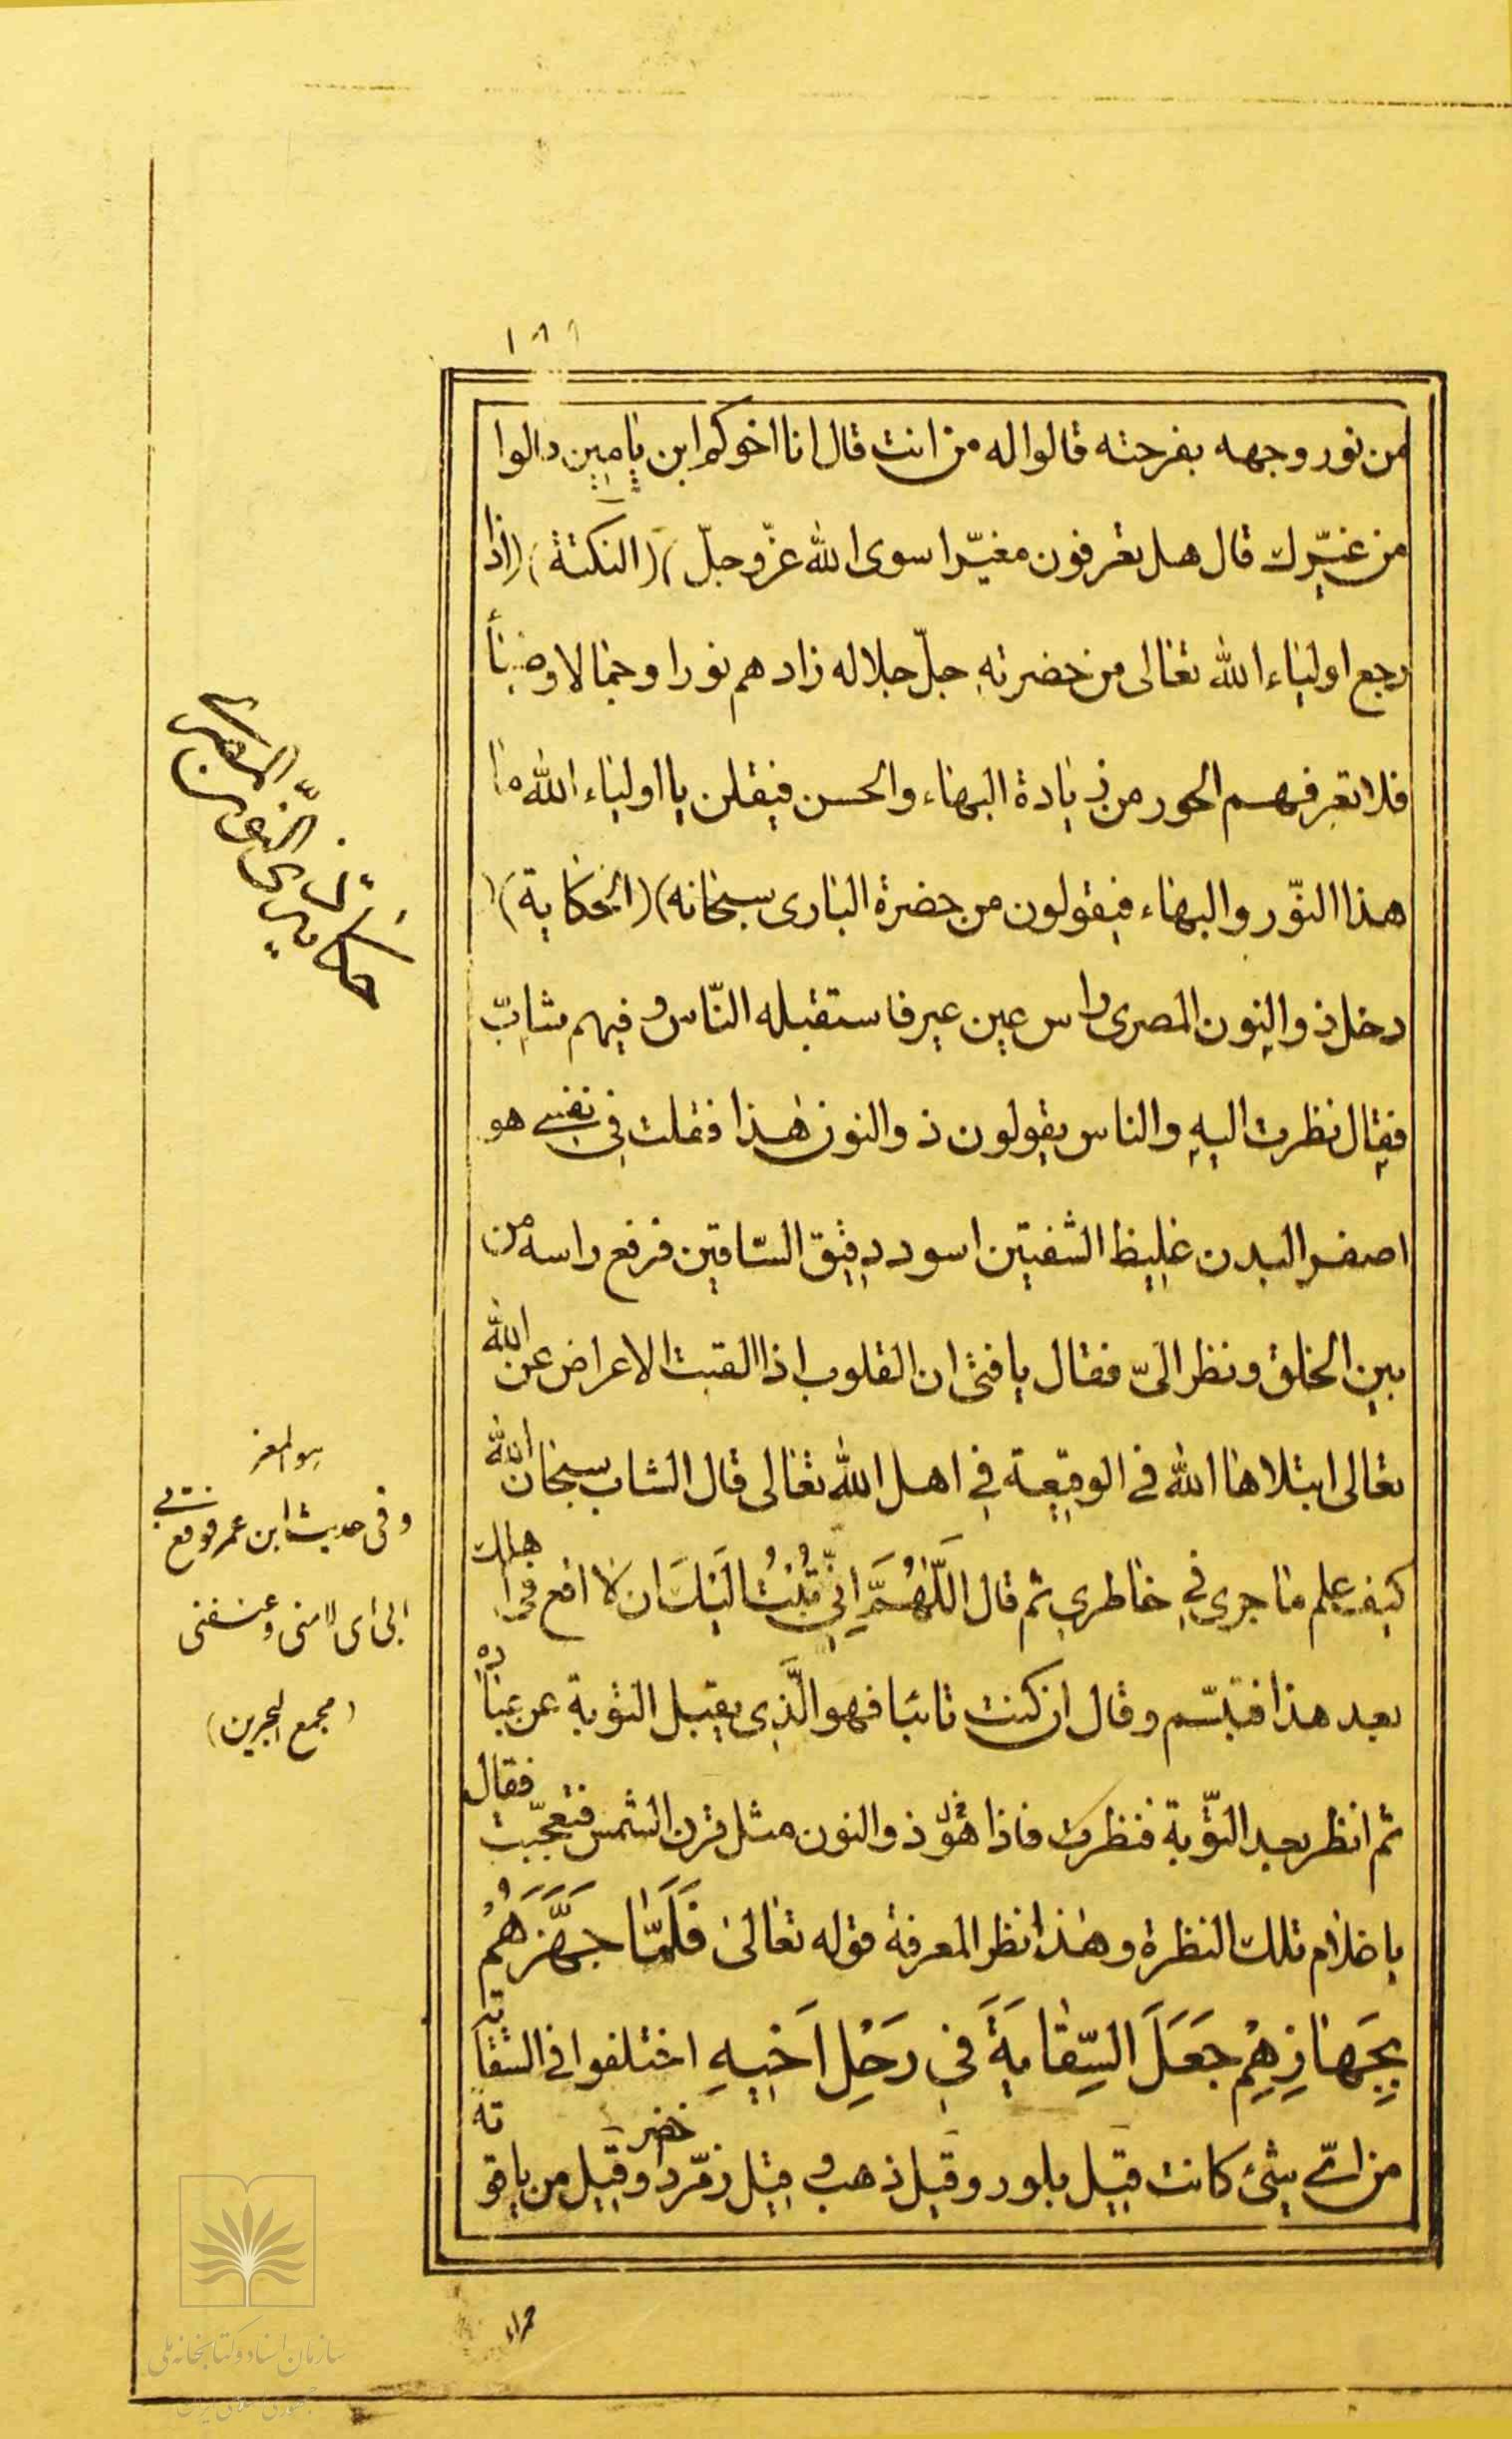 ١٨٩
من نور وجهه بفرحته قالوا له من انت قال انا اخوكم ابن يامين قالوا
من غيّرك قال هل تعرفون مغيّرا سوى الله عزّ وجلّ) (النكتة) (اذا
رجع اولياء الله تعالى من حضرته جلّ جلاله زادهم نورا وجمالا وضياءً
فلا تعرفهم الحور من زيادة البهاء والحسن فيقلن يا اولياء الله ما
هذا النّور والبهاء فيقولون من حضرة البارى سبحانه) (الحكاية)
دخل ذو النون المصرى راس عين عير فاستقبله النّاس وفيهم شابّ
فقال نظرت اليه والناس يقولون ذو النون هذا فقلت فى نفسى هو
اصفر البدن غليظ الشفتين اسود دقيق السّاقين فرفع راسه من
بين الخلق ونظر الىّ فقال يا فتى ان القلوب اذا القبت الاعراض عن الله
تعالى ابتلاها الله فى الوقيعة فى اهل الله تعالى قال الشاب سبحان الله
كيف علم ما جرى فى خاطرى ثم قال اَللّٰهُمَّ اِنّى تُبْتُ اِلَيْكَ ان لا اقع فى اهلك
بعد هذا فتبسّم وقال ان كنت تائبا فهو الَّذى يقبل التوبة عن عباده
ثم انظر بعد التّوبة فنظرت فاذا هو ذو النون مثل قرن الشمس فتعجّبت فقال
يا غلام تلك النظرة وهذا نظر المعرفة قوله تعالى فَلَمَّا جَهَّزَهُمْ
بِجَهَازِهِمْ جَعَلَ السِّقَايَةَ فى رَحْلِ اَخيهِ اختلفوا فى السّقاية
من اىّ شىء كانت قيل بلور وقيل ذهب وقيل زمّرد اخضر وقيل من ياقوته
حمراء
حكاية ذى النّون المصرى
هو المعز
وفى حديث ابن عمر فوقع بى
ابى اى لامنى وعنفنى
(مجمع البحرين)
سازمان اسناد و کتابخانه ملی